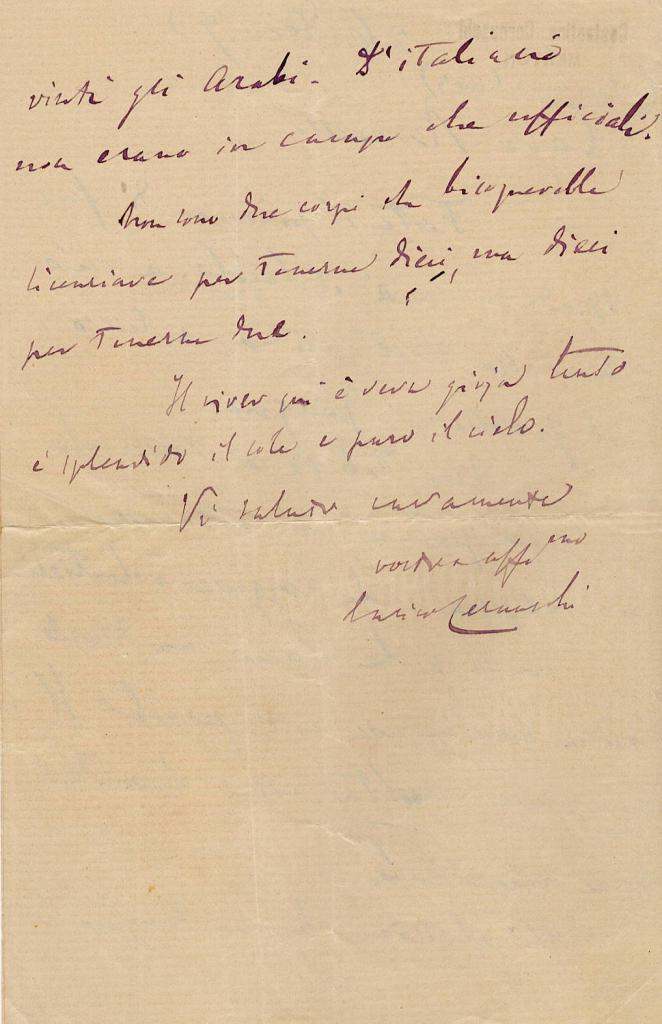 vinti gli Arabi. D'italiani
non erano in campo che ufficiali.
Non sono due corpi che bisognerebbe
licenziare per tenerne dieci, ma dieci
per tenerne due.
Il viver qui è vera gioja tanto
è splendido il sole e puro il cielo.
Vi saluto caramente
vostro affmo
Enrico Cernuschi